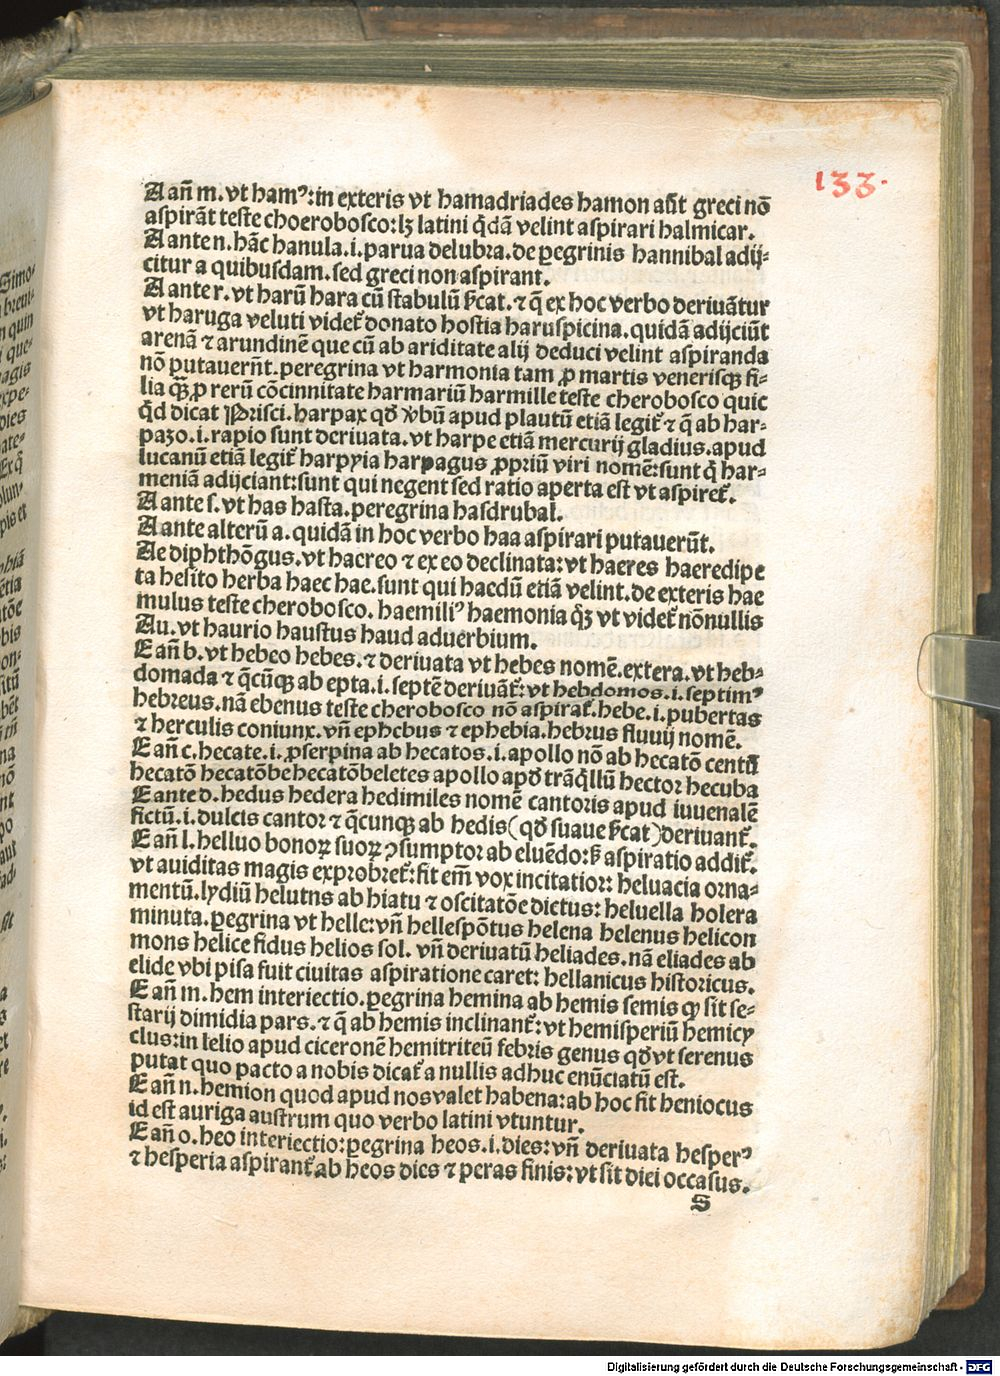 133.
A añ m. vt hamꝰ: in exteris vt hamadriades hamon asit greci nō
aspirāt teste choerobosco: lꝫ latini q̄dā velint aspirari halmicar.
A ante n. hāc hanula .i. parua delubra. de ꝑegrinis hannibal adij⸗
citur a quibusdam. sed greci non aspirant.
A ante r. vt harū hara cū stabulū ẜcat. ⁊ q̄ ex hoc verbo deriuātur
vt haruga veluti videt᷑ donato hostia haruspicina. quidā adijciūt
arenā ⁊ arundinē que cū ab ariditate alij deduci velint aspiranda
nō putauerñt. peregrina vt harmonia tam ꝓ martis venerisqꝫ fi⸗
lia qꝫ̄ ꝓ rerū cōcinnitate harmariū harmille teste cherobosco quic
q̄d dicat Prisci. harpax qd̄ v̄bū apud plautū etiā legit᷑ ⁊ q̄ ab har⸗
pazo .i. rapio sunt deriuata. vt harpe etiā mercurij gladius. apud
lucanū etiā legit᷑ harpyia harpagus ꝓpriū viri nomē: sunt q̄ har⸗
meniā adijciant: sunt qui negent sed ratio aperta est vt aspiret᷑.
A ante s. vt has hasta. peregrina hasdrubaƚ.
A ante alterū a. quidā in hoc verbo haa aspirari putauerūt.
Ae diphthōgus. vt hacreo ⁊ ex eo declinata: vt haeres haeredipe
ta hesito herba haec hae. sunt qui haedū etiā velint. de exteris hae
mulus teste cherobosco. haemiliꝰ haemonia qꝫ̄ vt videt᷑ nōnullis
Au. vt haurio haustus haud aduerbium.
E añ b. vt hebeo hebes. ⁊ deriuata vt hebes nomē. extera. vt heb⸗
domada ⁊ q̄cūqꝫ ab epta .i. septē deriuāt᷑: vt hebdomos .i. septimꝰ
hebreus. nā ebenus teste cherobosco nō aspirat᷑. hebe .i. pubertas
⁊ herculis coniunx. vñ ephebus ⁊ ephebia. hebrus fluuij nomē.
E añ c. hecate .i. ꝓserpina ab hecatos .i. apollo nō ab hecatō centū
hecatō hecatōbe hecatōbeletes apollo apd̄ trāq̄llū hector hecuba
E ante d. hedus hedera hedimiles nomē cantoris apud iuuenalē
fictū .i. dulcis cantor ⁊ q̄cunqꝫ ab hedis (qd̄ suaue ẜcat) deriuant᷑.
E añ l. helluo bonoꝝ suoꝝ ꝯsumptor ab eluēdo: ẜ aspiratio addit᷑.
vt auiditas magis exprobret᷑: fit em̄ vox incitatior: heluacia orna⸗
mentū. lydiū helutns ab hiatu ⁊ oscitatōe dictus: heluella holera
minuta. ꝑegrina vt helle: vñ hellespōtus helena helenus helicon
mons helice fidus helios sol. vñ deriuatū heliades. nā eliades ab
elide vbi pisa fuit ciuitas aspiratione caret: hellanicus historicus.
E añ m. hem interiectio. ꝑegrina hemina ab hemis semis ꝙ sit se⸗
starij dimidia pars. ⁊ q̄ ab hemis inclinant᷑: vt hemisperiū hemicy
clus: in lelio apud ciceronē hemitriteū febris genus qd̄ vt serenus
putat quo pacto a nobis dicat᷑ a nullis adhuc enūciatū est.
E añ n. hemion quod apud nos valet habena: ab hoc fit heniocus
id est auriga austrum quo verbo latini vtuntur.
E añ o. heo interiectio: ꝑegrina heos .i. dies: vñ deriuata hesperꝰ
⁊ hesperia aspirant᷑ ab heos dies ⁊ peras finis: vt sit diei occasus.
S
Digitalisierung gefördert durch die Deutsche Forschungsgemeinschaft - DFG